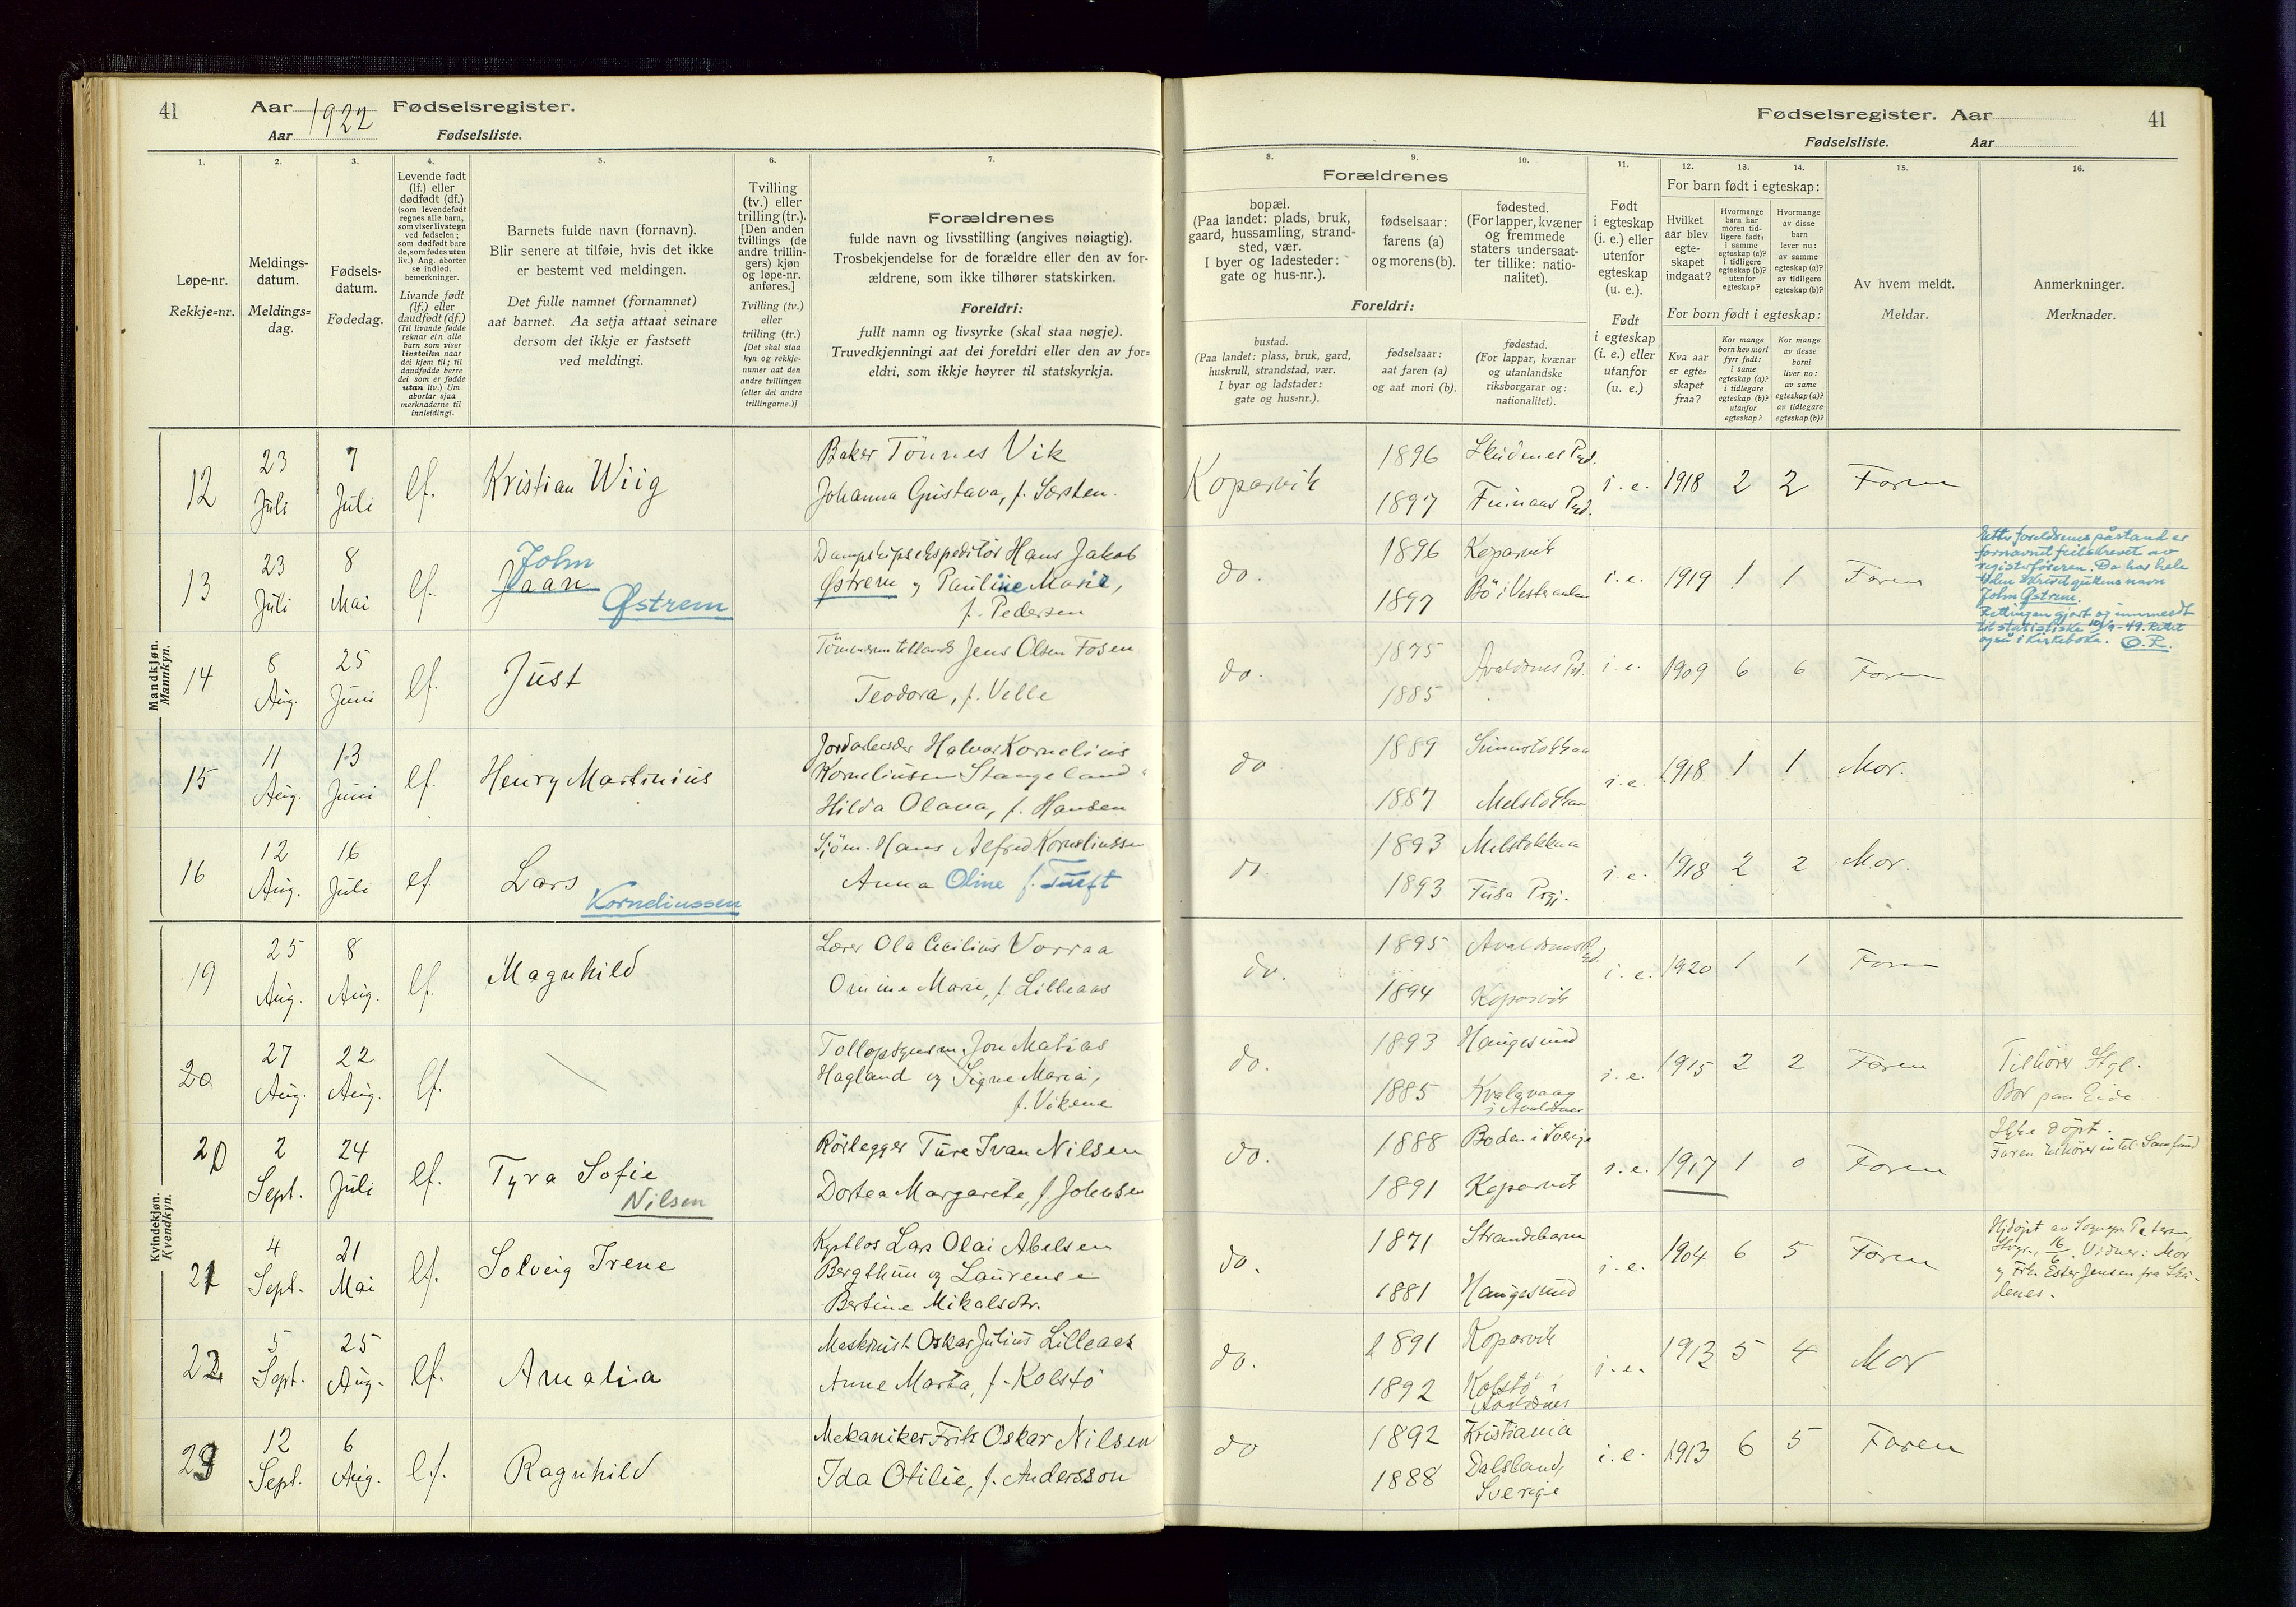 41
Aar 1922 Fødselsregister.
Aar Fødselsliste.
1.
2.
3.
4.
5.
6.
7.
Løpe-nr.
Rekkje=nr.
Meldings-
datum.
Meldings=
dag.
Fødsels-
datum.
Fødedag.
Levende født
(lf.) eller
dødfødt (df.)
(som levendefødt
regnes alle barn,
som viser livstegn
ved fødselen;
som dødfødt bare
de, som fødes uten
liv.) Ang. aborter
se indled.
bemerkninger.
Livande født
(lf.) eller
daudfødt (df.)
(Til livande fødde
reknar ein alle
barn som viser
livsteikn naar
dei kjem til; til
daudfødde berre
dei som er fødde
utan liv.) Um
abortar sjaa
merknaderne til
innleidingi.
Barnets fulde navn (fornavn).
Blir senere at tilføie, hvis det ikke
er bestemt ved meldingen.
Det fulle namnet (fornamnet)
aat barnet. Aa setja attaat seinare
dersom det ikkje er fastsett
ved meldingi.
Tvilling
(tv.) eller
trilling (tr.).
[Den anden
tvillings (de
andre trillin-
gers) kjøn
og løpe-nr.
anføres.]
Tvilling (tv.)
eller
trilling (tr.)
[Det skal staa
kyn og rekkje-
numer aat den
andre tvillingen
(eller dei andre
trillingarne.)]
Forældrenes
fulde navn og livsstilling (angives nøiagtig).
Trosbekjendelse for de forældre eller den av for-
ældrene, som ikke tilhører statskirken.
Foreldri:
fullt namn og livsyrke (skal staa nøgje).
Truvedkjenningi aat dei foreldri eller den av for=
eldri, som ikkje høyrer til statskyrkja.
Mandkjøn.
Mannkyn.
12
23
Juli
7
Juli
lf.
Kristian Wiig
Baker Tönnes Vik
Johanna Gustava, f. Sørsten.
13
23
Juli
8
Mai
lf.
John
Jaan
Østrem
Dampskipsekspeditør Hans Jakob
Østrem og Pauline Marie,
f. Pedersen
14
8
Aug.
25
Juni
lf.
Just
Jens Olsen Fosen
Teodora, f. Velle
15
11
Aug.
13
Juni
lf.
Henry Martinius
Jordarbeider Halvor Kornelius
Korneliussen Stangeland
Hilda Olava, f. Hansen
16
12
Aug.
16
Juli
lf
Lars
Korneliussen
Sjøm. Hans Alfred Korneliussen
Anna Oline f. Tueft
Kvindekjøn.
Kvendkyn.
19
25
Aug.
8
Aug.
lf.
Magnhild
Lærer Ola Cecilius Vorraa
Omine Marie, f. Lilleaas
20
27
Aug.
22
Aug.
lf.
Tollopsynsm. Jon Matias
Hagland og Signe Maria,
f. Vikene
20
2
Sept.
24
Juli
lf.
Tyra Sofie
Nilsen
Rörlegger Ture Ivan Nilsen
Dortea Margarete, f. Johnsen
21
4
Sept.
21
Mai
lf.
Solveig Irene
Kystlos Lars Olai Abelsen
Bergthun og Laurense
Bertine Mikalsdtr.
22
5
Sept.
25
Aug.
lf.
Amalia
Maskinist Oskar Julius Lilleaas
Anne Marta, f. Kolstö
23
12
Sept.
6
Aug.
lf.
Ragnhild
Mekaniker Frik Oskar Nilsen
Ida Otilie, f. Andersson
Fødselsregister. Aar
41
Fødselsliste.
Aar
8.
9.
10.
11.
12.
13.
14.
15.
16.
Forældrenes
bopæl.
(Paa landet: plads, bruk,
gaard, hussamling, strand-
sted, vær.
I byer og ladesteder:
gate og hus-nr.).
fødselsaar:
farens (a)
og morens (b).
fødested.
(For lapper, kvæner
og fremmede
staters undersaat-
ter tillike: natio-
nalitet).
Foreldri:
bustad.
(Paa landet: plass, bruk, gard,
huskrull, strandstad, vær.
I byar og ladstader:
gate og hus=nr.).
fødselsaar:
aat faren (a)
og aat mori (b).
fødestad.
(For lappar, kvænar
og utanlandske
riksborgarar og:
nationalitet).
Født
i egteskap
(i. e.) eller
utenfor
egteskap
(u. e.).
Født
i egteskap
(i. e.) eller
utanfor
(u. e.)
For barn født i egteskap:
Hvilket
aar blev
egte-
skapet
indgaat?
Hvormange
barn har
moren tid-
ligere født:
i samme
egteskap (a)?
i tidligere
egteskap (b)?
utenfor
egteskap?
Hvormange
av disse
barn
lever nu:
av samme
egteskap (a)?
av tidligere
egteskap (b)?
For born født i egteskap:
Kva aar
er egte=
skapet
fraa?
Kor mange
born hev mori
fyrr født:
i same
egteskap (a)?
i tidlegare
egteskap (b)?
utanfor
egteskap?
Kor mange
av desse
borni
liver no:
av same
egteskap (a)?
av tidlegare
egteskap (b)?
Av hvem meldt.
Meldar.
Anmerkninger.
Merknader.
Koparvik
1896
1897
Skudenes Pgd.
i. e.
1918
2
2
Faren
do.
1896
1897
Koparvik
Bö i Vesteraalen
i. e.
1919
1
1
Faren
Etter foreldrenes påstand er
fornavnet feilskrevet av
registerføreren. De har hele
tiden skrevet guttens navn
John Østrem.
Rettingen gjort og innmeldt
til statistiske 10/9-49. Rettet
også i kirkeboka. O.R.
do.
1875
1885
Avaldsnes Pd.
i. e.
1909
6
6
Faren
do
1889
1887
Melstokkan
i. e.
1918
1
1
Mor.
do.
1893
1893
Melstokkaa
Fusa Prgj.
i. e.
1918
2
2
Mor.
do.
1895
1894
Avaldsnes Pgd.
Koparvik
i. e.
1920
1
1
Faren
do.
1893
1885
Haugesund
Kvalavaag
i Avaldsnes
i. e.
1915
2
2
Faren
Tilhører Stgl.
Bor paa Eide.
do.
1888
1891
Boden i Sverige
Koparvik
i. e.
1917
1
0
Faren
Ikke döpt.
Faren tilhører intet Samfund
do.
1871
1881
Strandebarm
Haugesund
i. e.
1904
6
5
Faren
Hjdöpt av Sognepr. Petersen,
Hvgr., 16/6. Vidner: Mor
og Frk. Ester Jensen fra Sku-
denes.
do.
1891
1892
Koparvik
Kolstö i
Avaldsnes
i. e.
1913
5
4
Mor
do
1892
1888
Kristiania
Dalsland,
Sverige
i. e.
1913
6
5
Faren